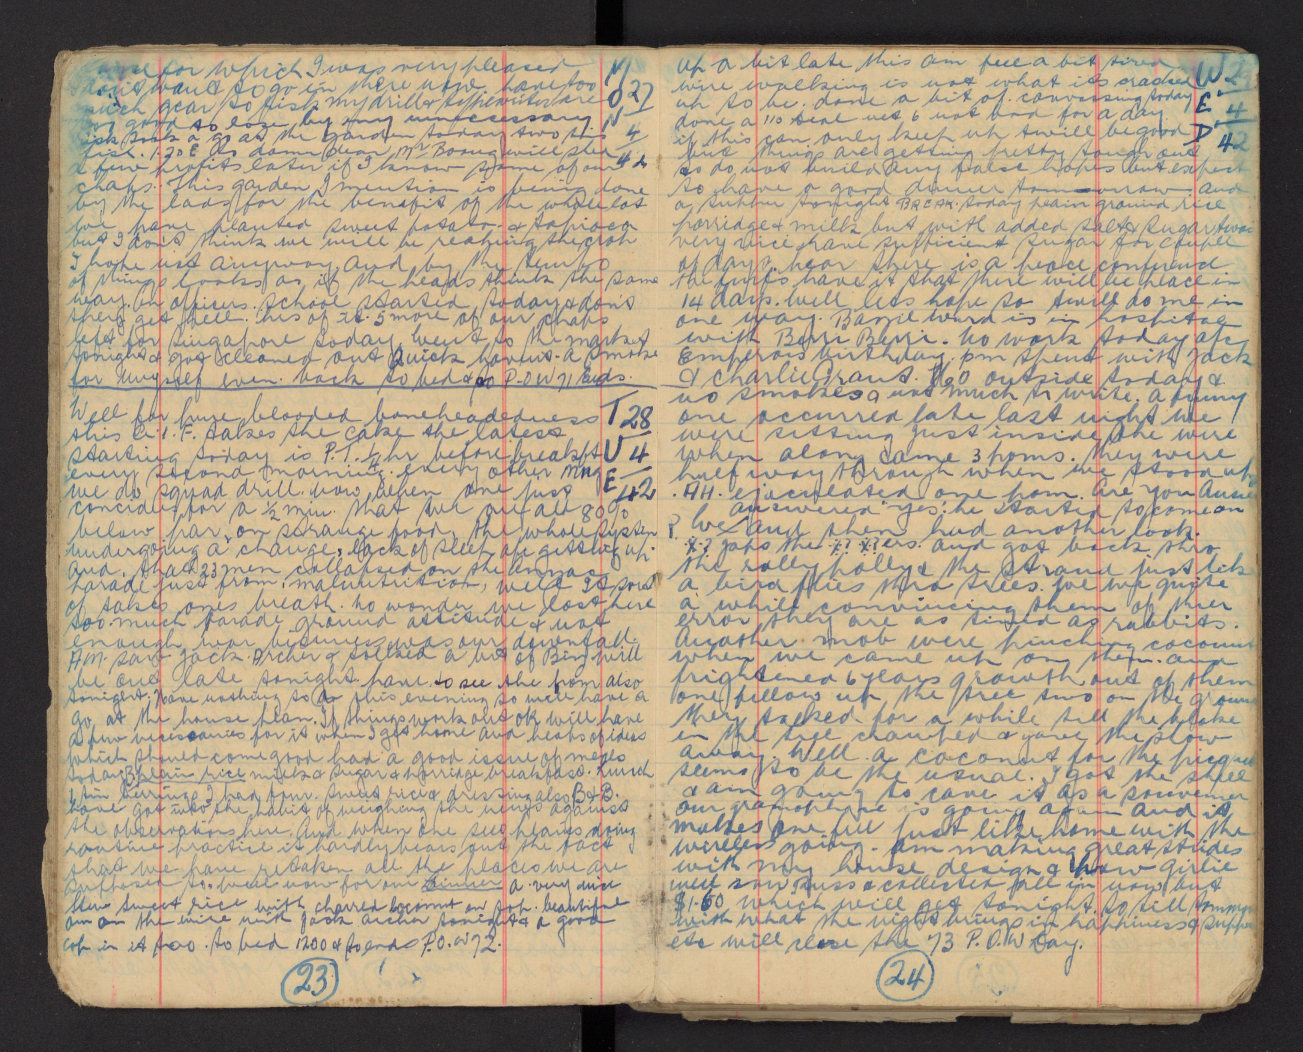 for which I was very pleased
don't want to go in there now. have too
much gear to risk my drill & typewriter are
too good to lose by any unnecessary
risk. at the garden today two tin
fish. 1.30 E. damn dear Mr Boong will see
a few profits later if I know some of our
chaps. This garden I mention is being done
by the lads for the benefit of the whole lot
we have planted sweet potato & tapioca
but I don't think we will be reaping the crop
I hope not anyway and by the
of things looks as if the heads think the same
way. An officers school started today & don't
they get hell. 5 more of our chaps
left for Singapore today. went to the market
tonight & got cleaned out Quick haven't a smoke
for myself even. back to bed & so P.O.W 71 ends.
MON 27/4/42
Well for pure blooded boneheadedness
this A.I.F. takes the cake the latest
starting today is P.T. ½ hr before breakfst
every second morning. every other mng
we do squad drill. now when one just
concides for a ½ min. that we are all 80%
below par, on strange food, the whole system
undergoing a change, lack of sleep getting up.
and that 23 men collapsed on the
parade just from malnutrition, well it sort
of takes ones breath. no wonder we lost here
too much parade ground attitude & not
enough war bitumess was our downfall.
AM saw Jack Archer & talked a bit of Biz will
be out late tonight have to see the pom also
tonight. have nothing to do this evening so will have a
go at the house plan. If things work out ok will have
a few necessaries for it when I get home and heaps of ideas
which should come good had a good issue of meals
today B plain rice milk & sugar & porridge breakfast. Lunch
1 tin herrings I had four. sweet rice & dressing also B & B.
have got into the habit of weighing the news against
the observations here. And when one sees planes doing
routine practice it hardly bears out the fact
that we have retaken all the places we are
supposed to. well now for our dinner a very nice
stew sweet rice with charred coconut on top. beautiful
am on the wire with Jack Archer tonight & a good
cop in it too. to bed 1200 & so ends P.O.W 72.
TUE 28/4/42
23
up a bit late this am feel a bit tired
wire walking is not what its cracked
up to be. done a bit of canvassing today
done a 110 deal net 6 not bad for a day
if this can only keep up twill be good
but things are getting pretty tough out
so do not build any false hopes but expect
to have a good dinner tomorrow and
a supper tonight BREAK. today plain ground rice
porridge & milk but with added salt & sugar twas
very nice have sufficient sugar for couple
of days. hear there is a peace conference
the furfs have it that there will be peace in
14 days. well lets hope so twill do me in
one way. Bazil Ward is in hospital
with Berri Berri. no work today a/c
Emperors birthday. pm spent with Jack
& Charlie Grant. No outside today &
no smokes a not much to write. a funny
one occurred late last night we
were sitting just inside the wire
when along came 3 poms. they were
half way through when we stood up
AH. ejaculated one pom. Are you Aussies
answered yes: he started to come on
he and then had another look.
*?? Japs the *?? *?ers. and got back thro
the rolly polly & the strand just like
a bird flies thro trees. we quite
a while convincing them of their
error, they are as timed as rabbits.
Another mob were pinching coconuts
when we came up on them and
frightened 6 years growth out of them
one fellow up the tree two on the ground
they talked for a while till the bloke
in the tree chanted & gave the show
away. Well a coconut for the picquet
seems to be the usual. I got the shell
& am going to carve it as a souvenier
our gramophone is going again and it
makes one feel just like home with the
wireless going. Am making great strides
with my house design & how Girlie
will now Russ & collected all in now but
$1.60 which will get tonight. so till tommy
with what the night brings in happiness & supper
etc will close the 73 P.O.W Day.
WED 29/4/42
24